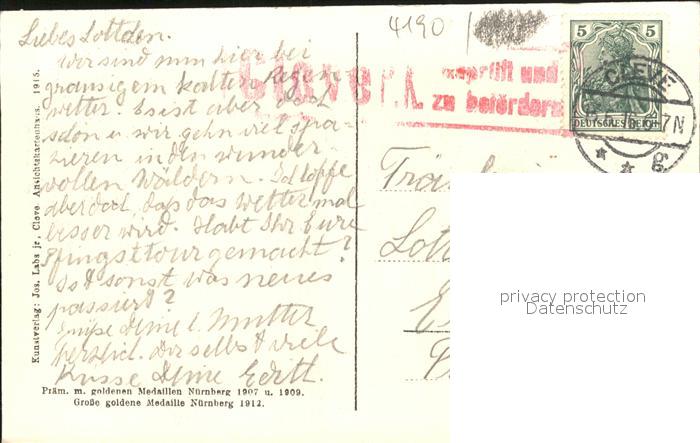 Liebes Lottchen.
Wir sind nun hier bei
grausigem kalten Regen-
wetter. Es ist aber doch
schön u. wir gehn viel spa-
zieren in den wunder-
vollen Wäldern. Ich hoffe
aber doch, daß das Wetter mal
besser wird. Habt Ihr Eure
Pfingsttour gemacht?
Ist sonst was neues
passiert?
Grüße Deine l. Mutter
herzlich. Dir selbst viele
Küsse Deine Edith.
Präm. m. goldenen Medaillen Nürnberg 1907 u. 1909.
Große goldene Medaille Nürnberg 1912.
Kunstverlag: Jos. Labs jr., Cleve. Ansichtskartenhaus. 1915.
4190
geprüft und
zu befördern
5 5
DEUTSCHES REICH
CLEVE
7N
privacy protection
Datenschutz